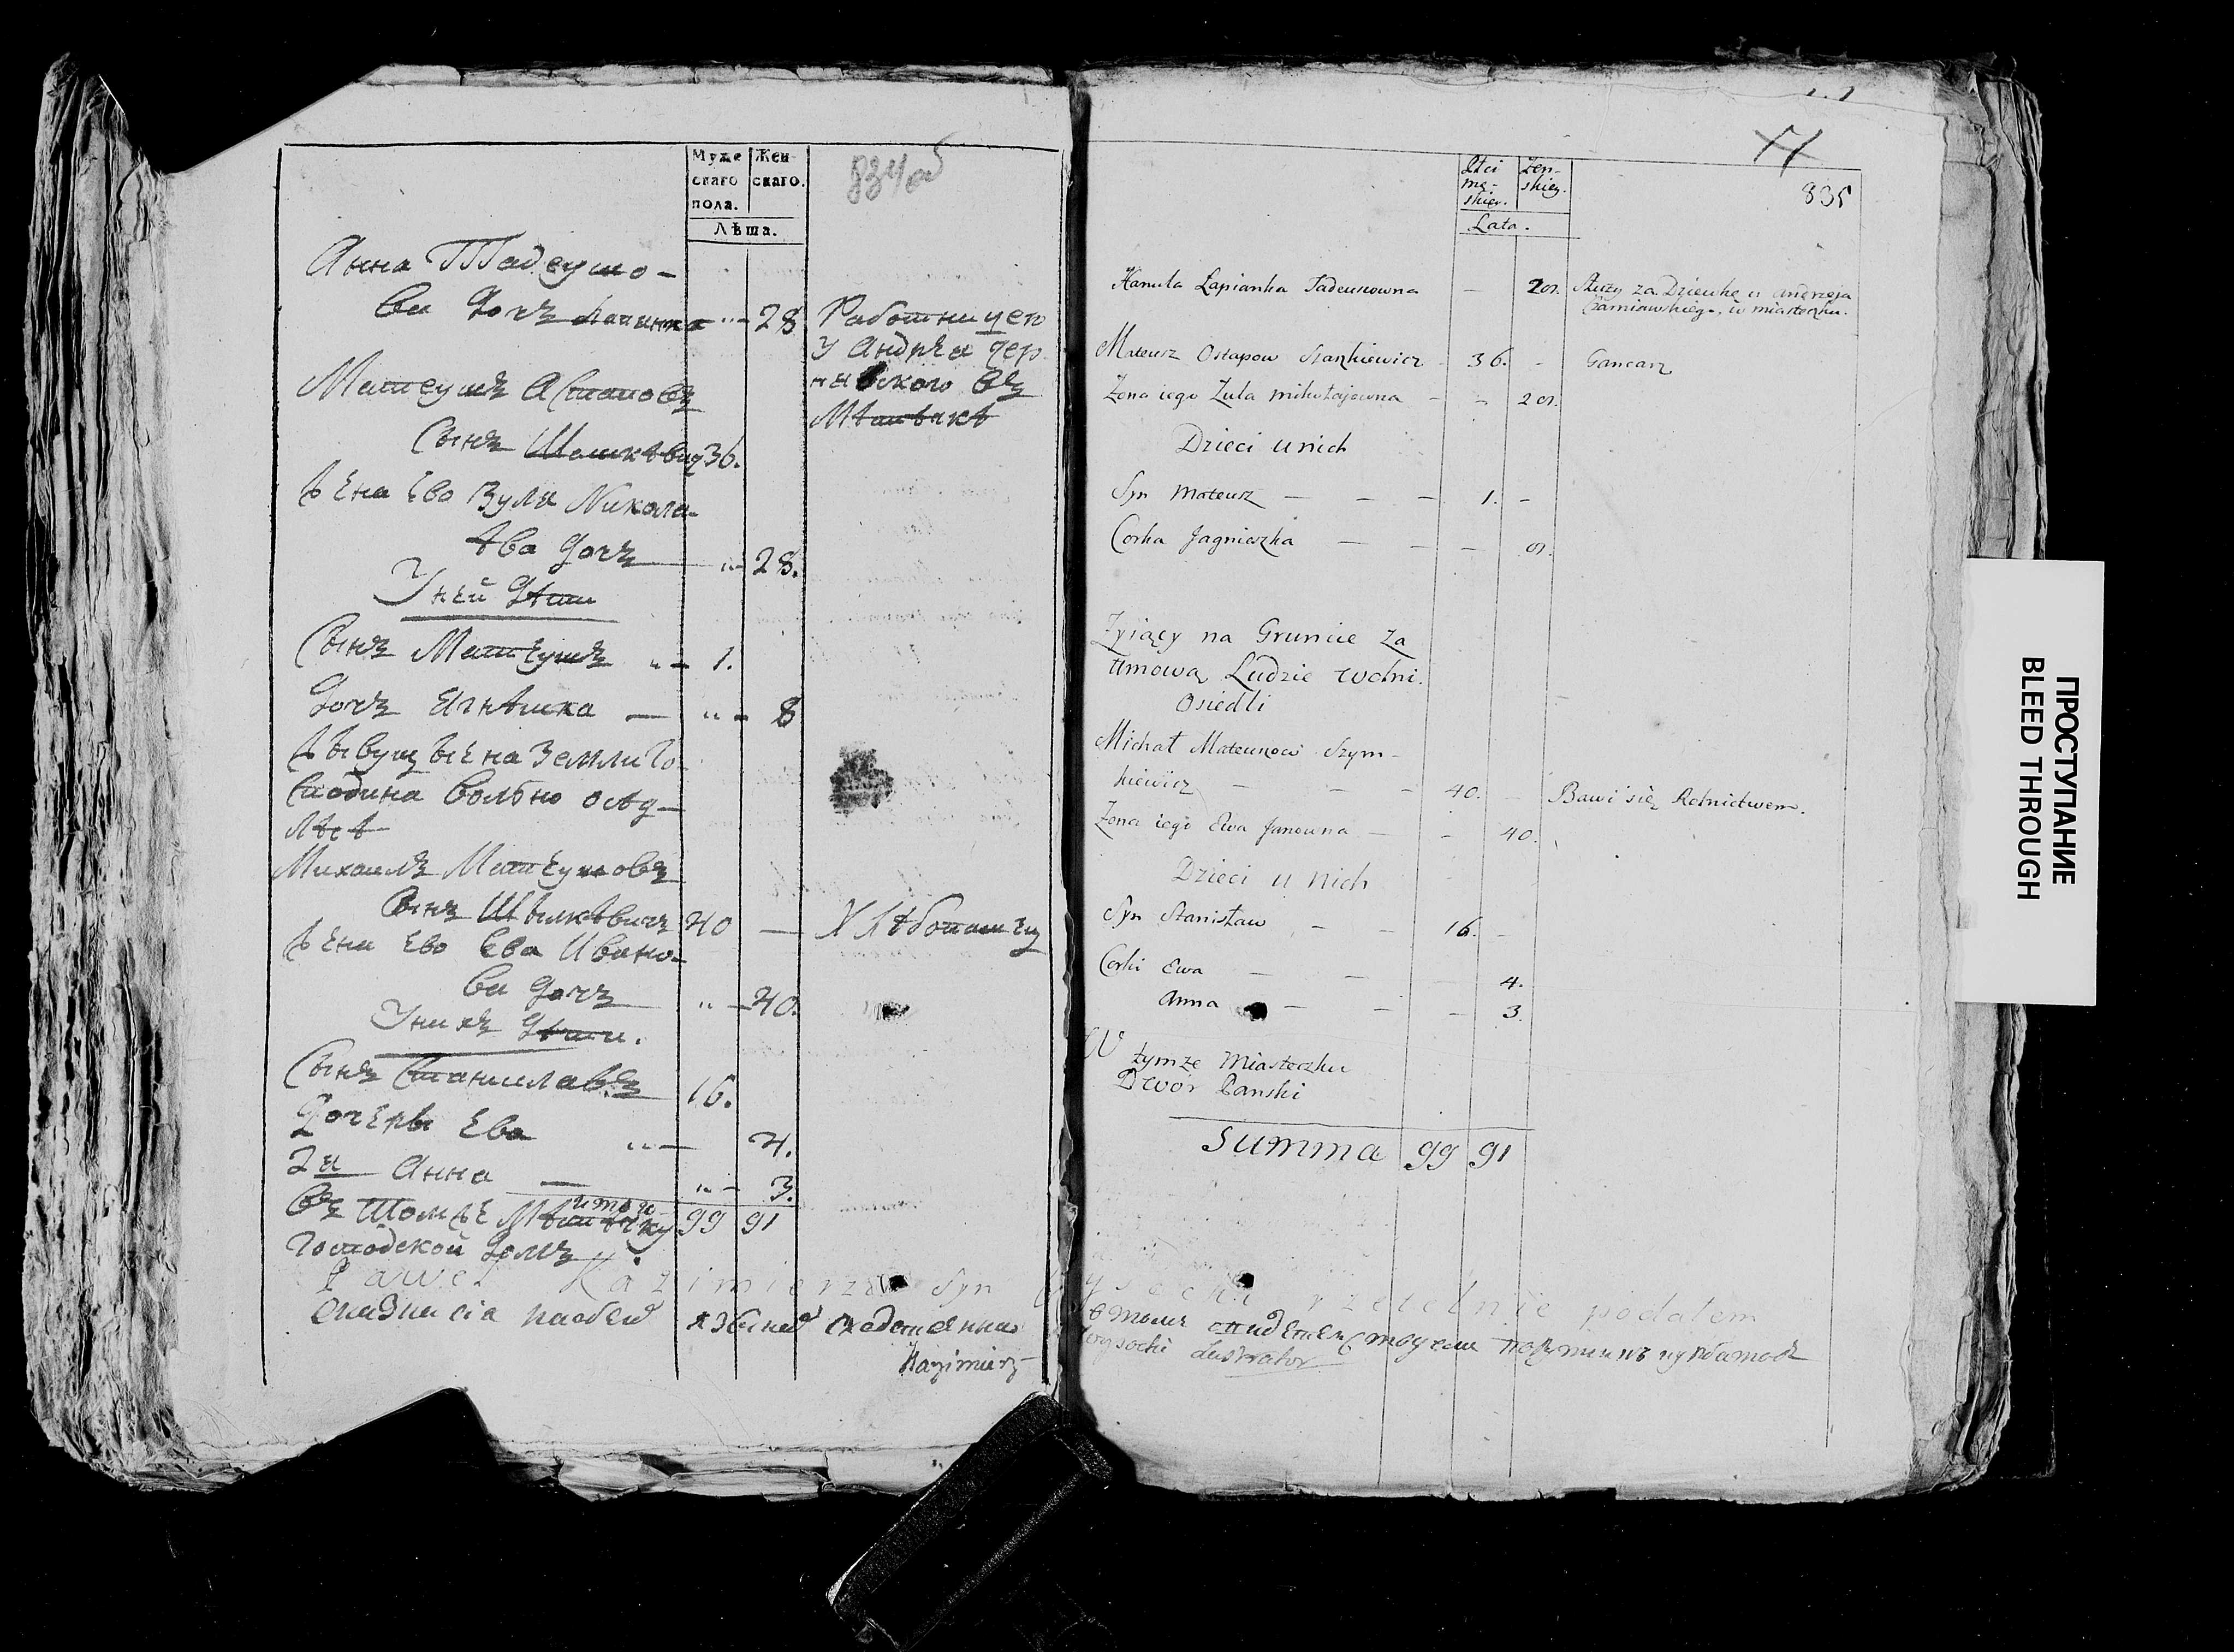 Муже
скаго
пола.
Жен
скаго.
Лѣта.
834об
Анна Тадеушо-
ва дочь Лапинка „ - 28 Работницею
у Андрея Чер
нявского въ
Мѣстѣчкѣ
Матеушъ Астаповъ
Сынъ 36.
жена Ево Зуля Никола-
ѣва дочь „ - 28.
У ней дѣти
Сынъ Матеушъ „ - 1.
дочь Ягнѣшка — „ - 8
живущые на земли Го-
сподина вольно осѣд-
лѣе
Михаилъ Матеушовъ
Сынъ Шымкѣвичъ 40 — Хлѣбопашец
жена Ево Ева Ивано-
ва дочь „ - 40.
У нихъ дѣти.
Сынъ Станиславъ 16.
дочеры Ева „ - 4.
2я Анна — „ - 3.
итого 99 91
въ томже Мѣстѣчку
Господской домъ
Pawel Kazimierzow Syn
Kazimierz
835
Płci
mę-
skiey.
żen-
skiey.
Lata.
Hanula Lapianka Tadeuszowna — 28. Służy za Dziewkę u Andrzeja
Czarniawskiego, w miasteczku.
Mateusz Ostapow Szankiewicz 36. - Gancarz
Zona iego Zula mikołajewna - - 28.
Dzieci u nich
Syn Mateusz — — — 1. -
Corka Jagnieszka — — — 8.
Zyiący na Gruncie za
umową Ludzie wolni.
Osiedli
Michał Mateuszow Szym-
kiewicz — — — 40. — Bawi się Rolnictwem.
Zona iego Ewa Janowna — - 40.
Dzieci u nich
Syn Stanisław — — 16. -
Corki Ewa — — 4.
Anna — — — 3.
W tymże Miasteczku
Dwór Panski
Summa 99 91
rzetelnie podałem
Wysocki Lustrator
ПРОСТУПАНИЕ
BLEED THROUGH